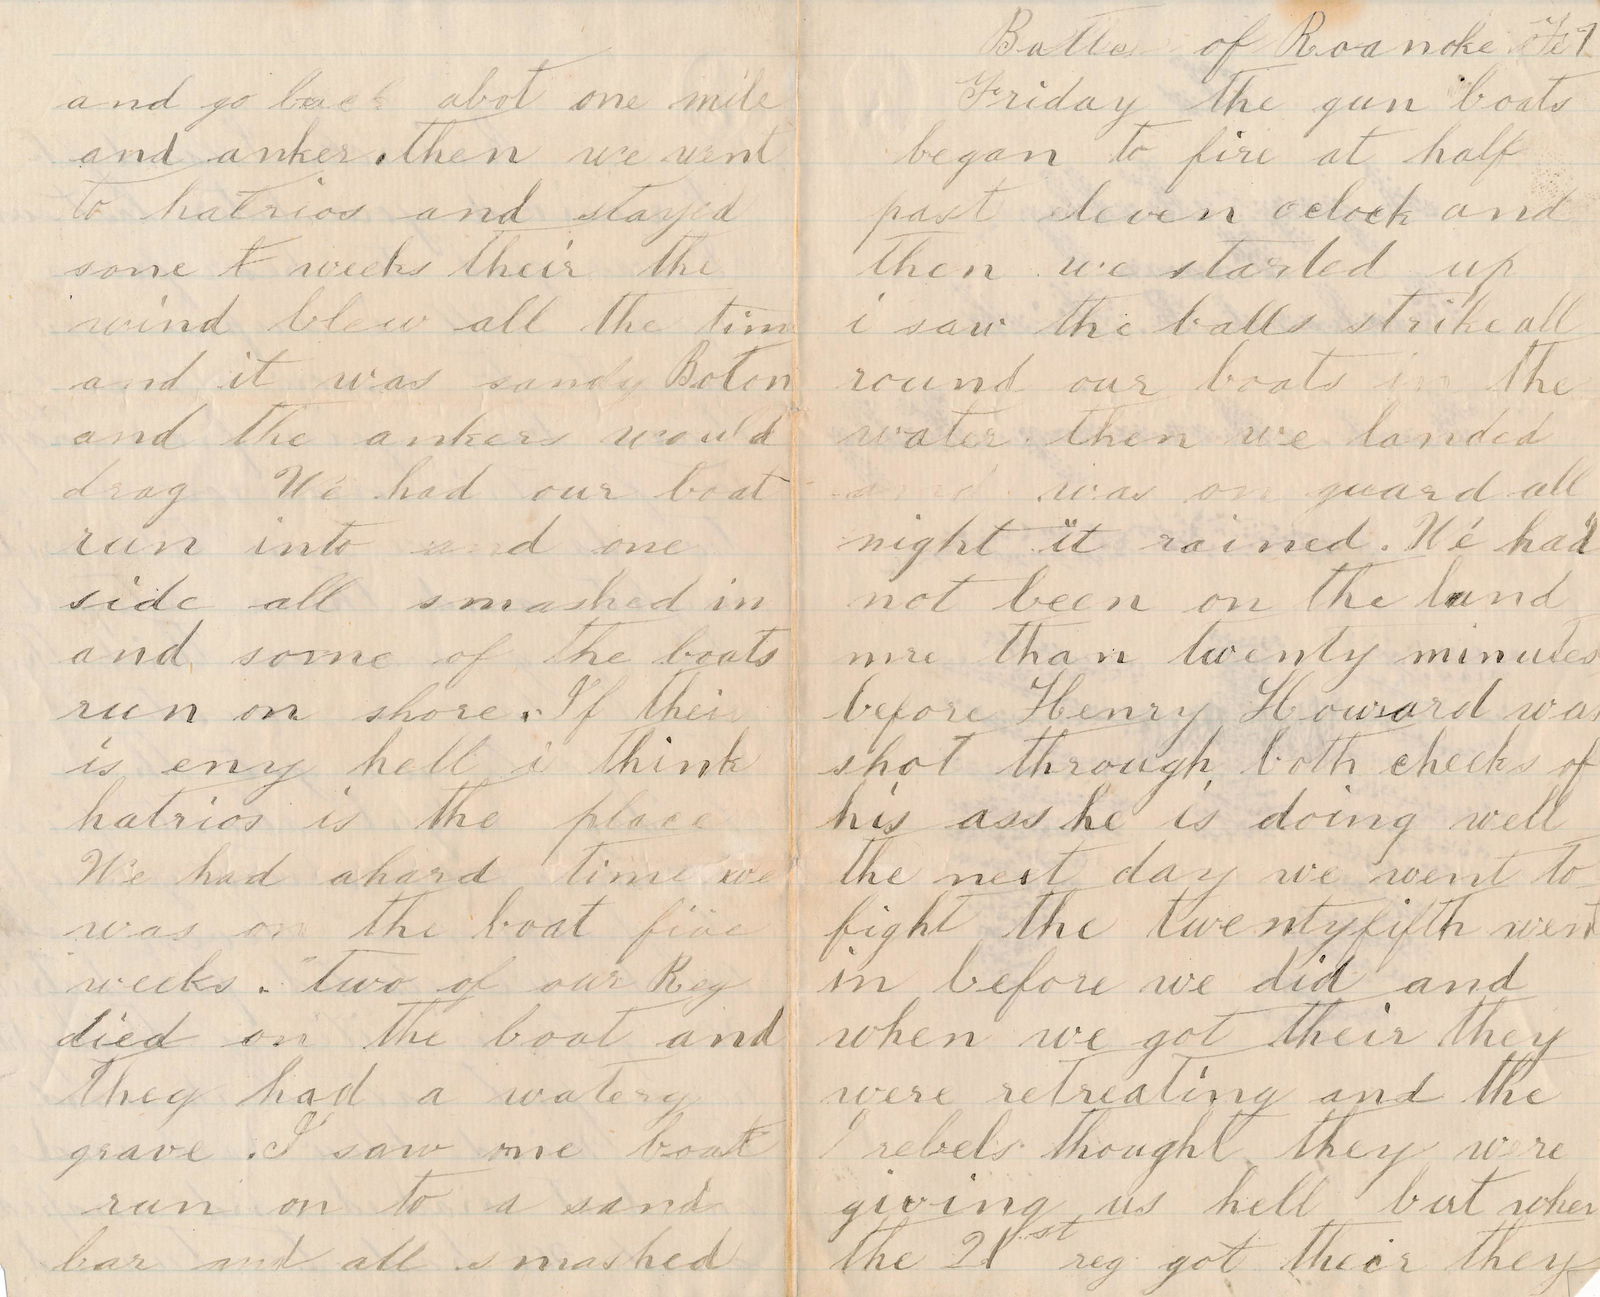 and go back abot one mile
and anker. then we went
to hatrios and stayed
some weeks their the
wind blew all the tim
and it was sandy Botom
and the ankers would
drag We had our boat
run into and one
side all smashed in
and some of the boats
run on shore. If their
is eny hell i think
hatrios is the place
We had ahard time we
was on the boat five
weeks. two of our Reg
died on the boat and
they had a watery
grave. I saw one boat
run on to a sand
bar and all smashed
Battle of Roanoke
Friday the gun boats
began to fire at half
past eleven oclock and
then we started up
i saw the balls strike all
round our boats in the
water. then we landed
and was on guard all
night it rained. We had
not been on the land
mre than twenty minutes
before Henry Howard was
shot through both cheeks of
his ass he is doing well
the next day we went to
fight the twentyfifth went
in before we did and
when we got their they
were retreating and the
rebels thought they were
giving us hell but when
the 21st reg got their they